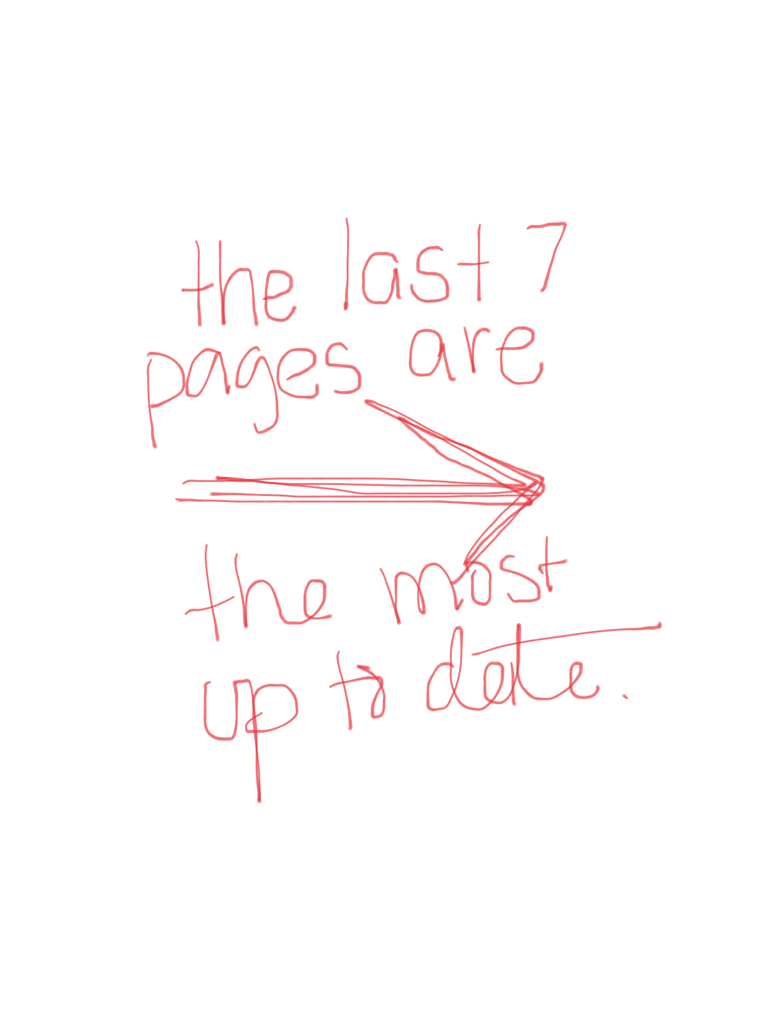 the last 7
pages are
the most
up to date.